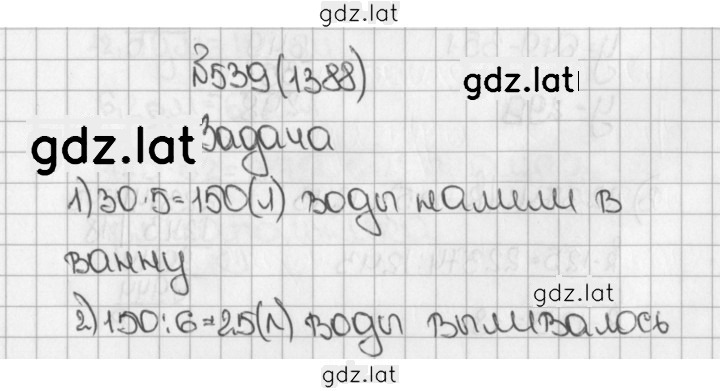 gdz.lat
№539(1388)
gdz.lat
gdz.lat
Задача
1) 30·5=150(л) воды налили в
ванну
gdz.lat
2) 150:6=25(л) воды выливалось
gdz.lat